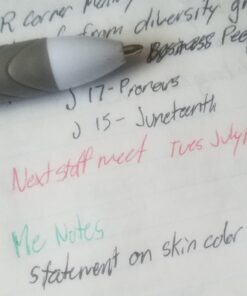 R corner
from diversity
Business Pee
17- Pronouns
15- Juneteenth
Next staff meet Tues July
Me Notes
statement on skin color